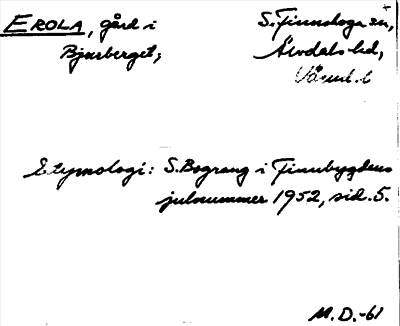 EROLA, gård i
Bjurberget,
S. Finnskoga sn,
Älvdals hd,
Värml. l
Etymologi: S. Bograng i Finnbygdens
julnummer 1952, sid. 5.
M.D.-61